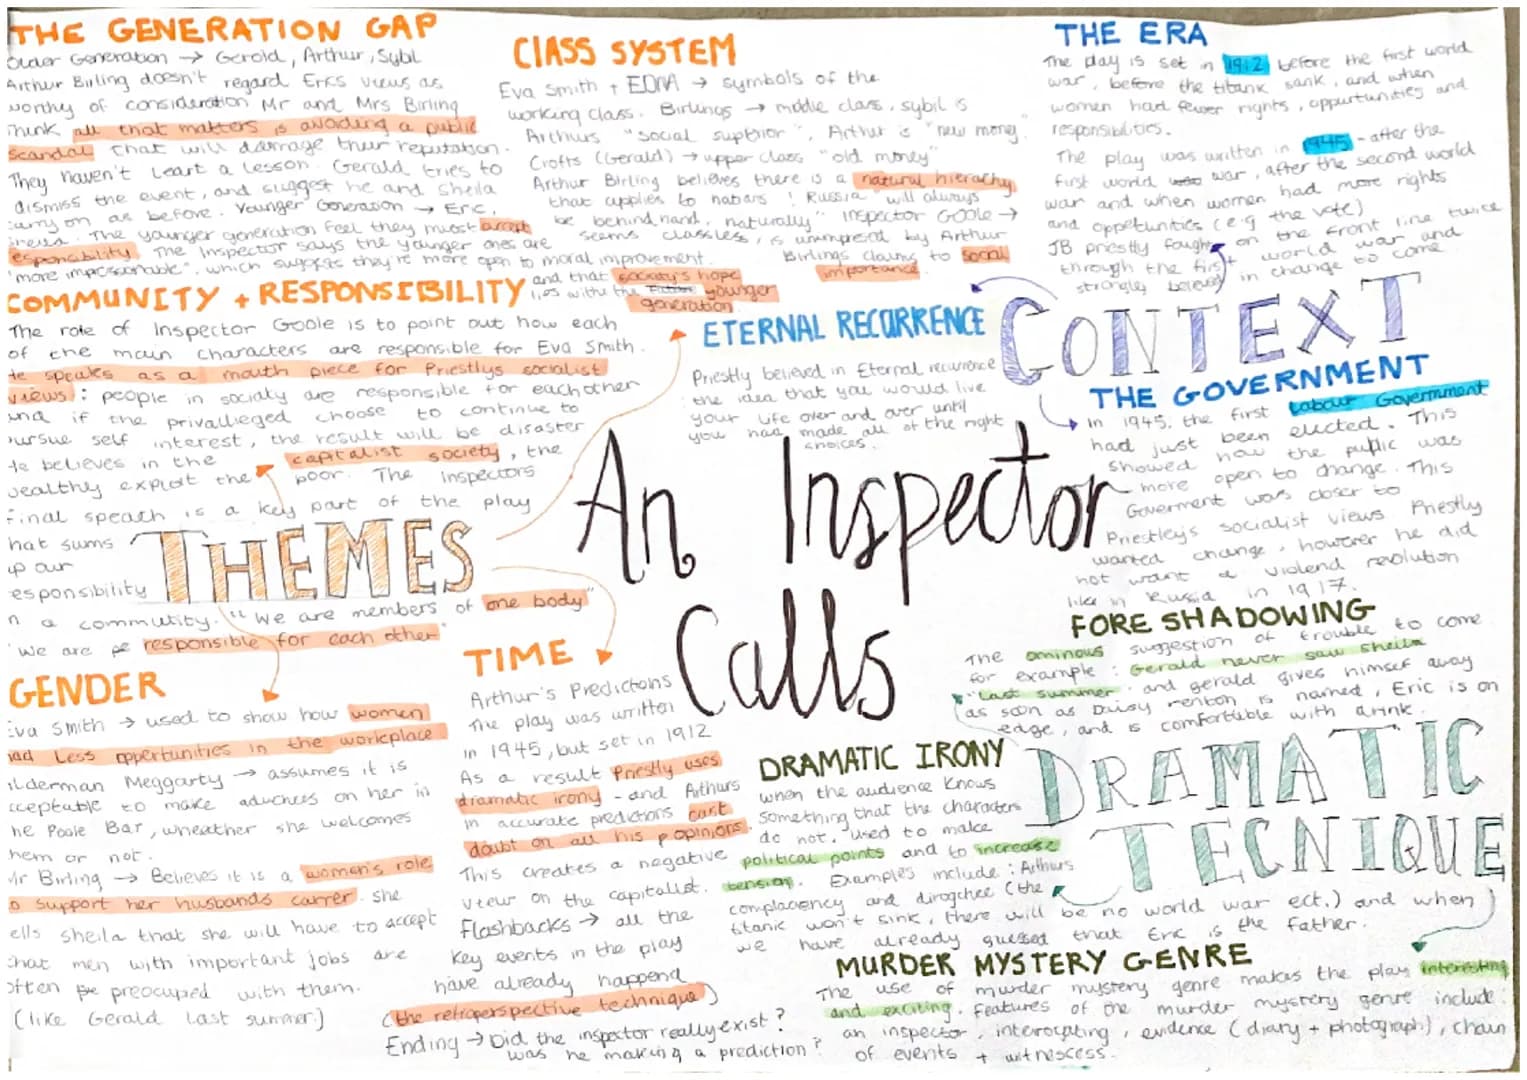 THE GENERATION GAP
Older Generation → Gerold, Arthur, Sybil
Arthur Birling doesn't regard Erics views as
worthy of consideration Mr and Mrs Birling
think all that matters is avoiding a public
scandal that will damage their reputation.
They haven't leart a lesson. Gerald tries to
dismiss the event, and suggest he and Sheila
carry on as before. Younger Generation → Eric,
Sheila. The younger generation feel they must accept
esponsibility. The Inspector says the younger ones are
"more impressionable", which suggests they're more open to moral improvement.
and that society's hope
lies withe the younger
generation
CLASS SYSTEM
Eva Smith + EDNA → symbols of the
working class. Birlings → middle class, sybil is
Arthurs "social suptior", Arthur is "new money."
Crofts (Gerald) → upper class "old money"
Arthur Birling believes there is a natural hierachy
that applies to nations ! Russia "will always
be behind hand, naturally" Inspector Goole →
seems classless, is unimpresed by Arthur
Birlings claims to social
importance.
THE ERA
The play is set in 1912 before the first world
war, before the titank sank, and when
women had fewer rights, oppurtunities and
responsibilities.
The play was written in 1945 - after the
first world war, after the second world
war and when women had more rights
and oppetunities (e.g the vote)
JB priestly fought on the front line twice
through the first world war and
strongly believed in change to come
CONTEXT
COMMUNITY + RESPONSIBILITY
The role of Inspector Goole is to point out how each
of the main characters are responsible for Eva Smith.
He speaks as a mouth piece for Priestlys socialist
views : people in sociaty are responsible for eachother
and if the privallieged choose to continue to
pursue self interest, the result will be disaster
He believes in the capitalist society, the
wealthy exploit the poor. The Inspectors
final speach is a key part of the play
that sums
up our
esponsibility
n a commutity. "We are members of one body"
"We are responsible for each other"
THEMES
ETERNAL RECURRENCE
Priestly believed in Eternal recurrence
the idea that you would live
your life over and over until
you had made all of the right
choices.
THE GOVERNMENT
In 1945, the first Labour Government
had just been elected. This
showed how the public was
more open to change. This
Goverment was closer to
Priestley's socialist views. Priestly
wanted change, however he did
not want a violend revolution
like in Russia in 1917.
An Inspector
Calls
GENDER
Eva Smith → used to show how women
had less oppertunities in the workplace
alderman Meggarty → assumes it is
cceptable to make advences on her in
he Palace Bar, wheather she welcomes
hem or not.
Mr Birling → Believes it is a women's role
o support her husbands carrer. she
ells sheila that she will have to accept
that men with important jobs are
often be preocuped with them.
(like Gerald last summer.)
TIME
Arthur's Predictions
The play was written
in 1945, but set in 1912
As a result Priestly uses
dramatic irony - and Arthurs
in accurate predictions cast
doubt on all his popinions.
This creates a negative
veiw on the capitalist.
Flashbacks → all the
key events in the play
have already happend
(the retroperspective technique)
Ending → Did the inspector really exist?
was he making a prediction?
FORE SHADOWING
The ominous suggestion of trouble to come
for example : Gerald never saw Sheila
"Last summer" and gerald gives himself away
as soon as Daisy renton is named, Eric is on
edge, and is comfortible with a drink.
DRAMATIC
TECNIQUE
DRAMATIC IRONY
when the audience knows
something that the characters
do not. used to make
political points and to increase
tension. Examples include : Arthurs
complacency and (the
titanic won't sink, there will be no world war ect.) and when
we have already guessed that Eric is the father.
MURDER MYSTERY GENRE
The use of murder mystery genre makes the play interesting
and exciting. Features of the murder mystery genre include:
an inspector, interrogating, evidence (diary + photograph), chain
of events + witnescess.